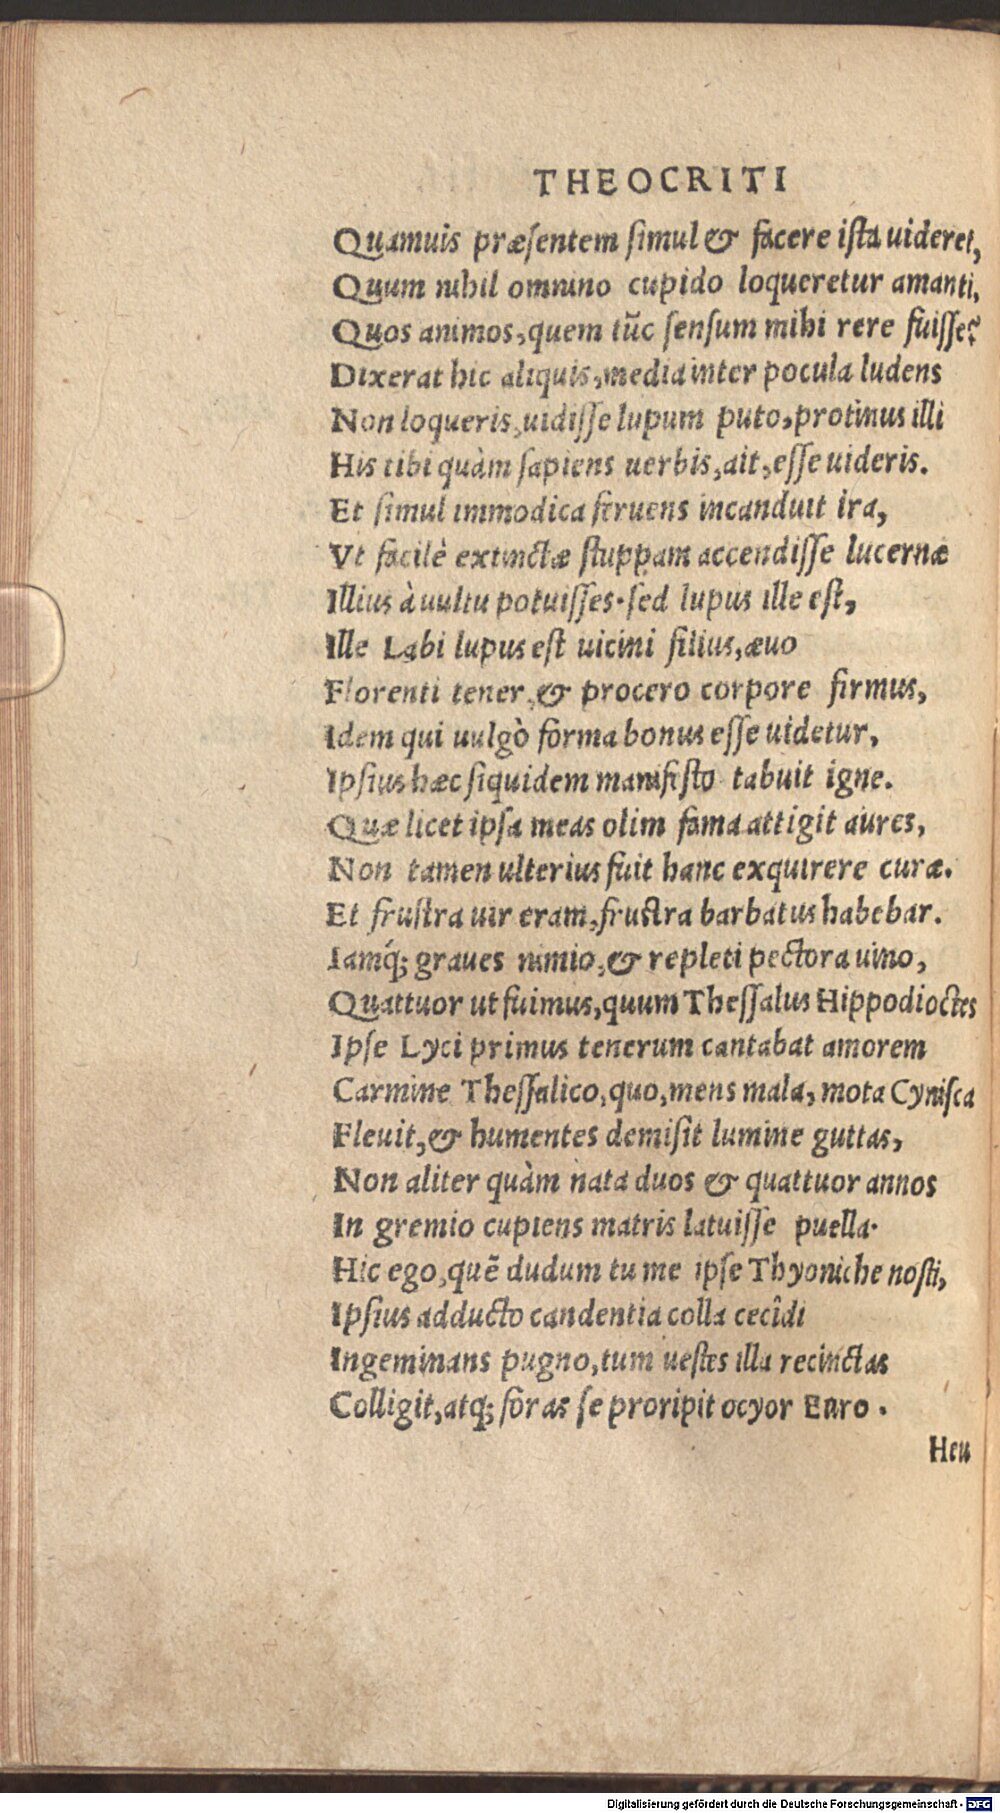 THEOCRITI
Quamuis præſentem ſimul & facere iſta uideret,
Quum nihil omnino cupido loqueretur amanti,
Quos animos, quem tũc ſenſum mihi rere fuiſſe?
Dixerat hic aliquis, media inter pocula ludens
Non loqueris, uidiſſe lupum puto, protinus illi
His tibi quàm ſapiens uerbis, ait, eſſe uideris.
Et ſimul immodica feruens incanduit ira,
Vt facilè extinctæ ſtuppam accendiſſe lucernæ
Illius à uultu potuiſſes. ſed lupus ille eſt,
Ille Labi lupus eſt uicini filius, æuo
Florenti tener, & procero corpore firmus,
Idem qui uulgò forma bonus eſſe uidetur,
Ipſius hæc ſiquidem manifeſto tabuit igne.
Quæ licet ipſa meas olim fama attigit aures,
Non tamen ulterius fuit hanc exquirere curæ.
Et fruſtra uir eram, fruſtra barbatus habebar.
Iamq́; graues nimio, & repleti pectora uino,
Quattuor ut fuimus, quum Theſſalus Hippodioctes
Ipſe Lyci primus tenerum cantabat amorem
Carmine Theſſalico, quo, mens mala, mota Cyniſca
Fleuit, & humentes demiſit lumine guttas,
Non aliter quàm nata duos & quattuor annos
In gremio cupiens matris latuiſſe puella.
Hic ego, quẽ dudum tu me ipſe Thyoniche noſti,
Ipſius adducto candentia colla cecîdi
Ingeminans pugno, tum ueſtes illa recinctas
Colligit, atq; foras ſe proripit ocyor Euro.
Heu
Digitalisierung gefördert durch die Deutsche Forschungsgemeinschaft - DFG